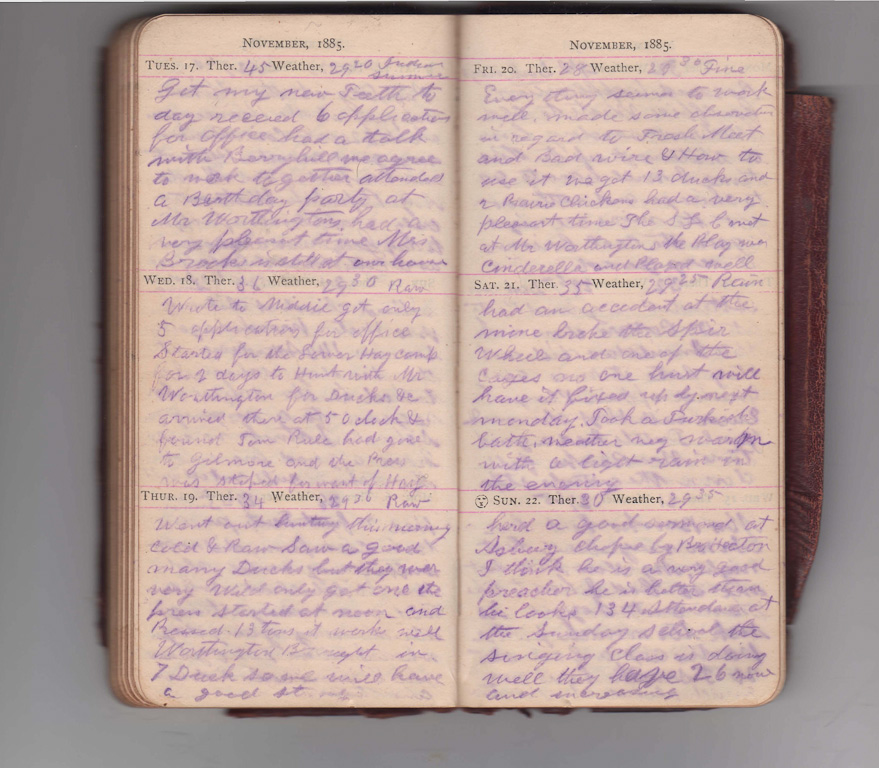 NOVEMBER, 1885.
TUES. 17. Ther. 45 Weather, 29 20 Indian
Summer
Got my new Teeth to
day received 6 applications
for office had a talk
with Berryhill we agree
to work together attended
a Birthday party at
Mr Worthingtons had a
very pleasant time Mrs
Brooks is still at our house
WED. 18. Ther. 31 Weather, 29 30 Raw
Wrote to Middie got only
5 applications for office
Started for the Senior Hay camp
for 2 days to Hunt with Mr
Worthington for Ducks &c
arrived there at 5 Oclock &
found Tom Rule had gone
to Gilmore and the Press
was stoped for want of Hay
THUR. 19. Ther. 34 Weather, 29 30 Raw
Went out hunting this morning
Cold & Raw Saw a good
many Ducks but they wer
very Wild only got one the
press started at noon and
Pressed 13 tons it works well
Worthington Brought in
7 Ducks so we will have
a good
NOVEMBER, 1885.
FRI. 20. Ther. 28 Weather, 29 30 Fine
Every thing seems to work
well, made some observations
in regard to Fresh Meet
and Bad wire & How to
use it we got 13 ducks and
2 Prairie Chickens had a very
pleasant time The S S C met
at Mr Worthingtons the Play was
Cinderella and Played well
SAT. 21. Ther. 35 Weather, 29 25 Rain
had an accident at the
mine broke the Spur
Wheel and one of the
Cages no one hurt will
have it fixed up by next
monday. Took a Turkish
bath, weather very warm
with a light rain in
the evening
SUN. 22. Ther. 30 Weather, 29 35
herd a good sermon at
Asbury chapel by Bro Hecton
I think he is a very good
preacher he is better than
he looks 134 Attendance at
the Sunday School the
singing Class is doing
well they have 26 now
and increasing